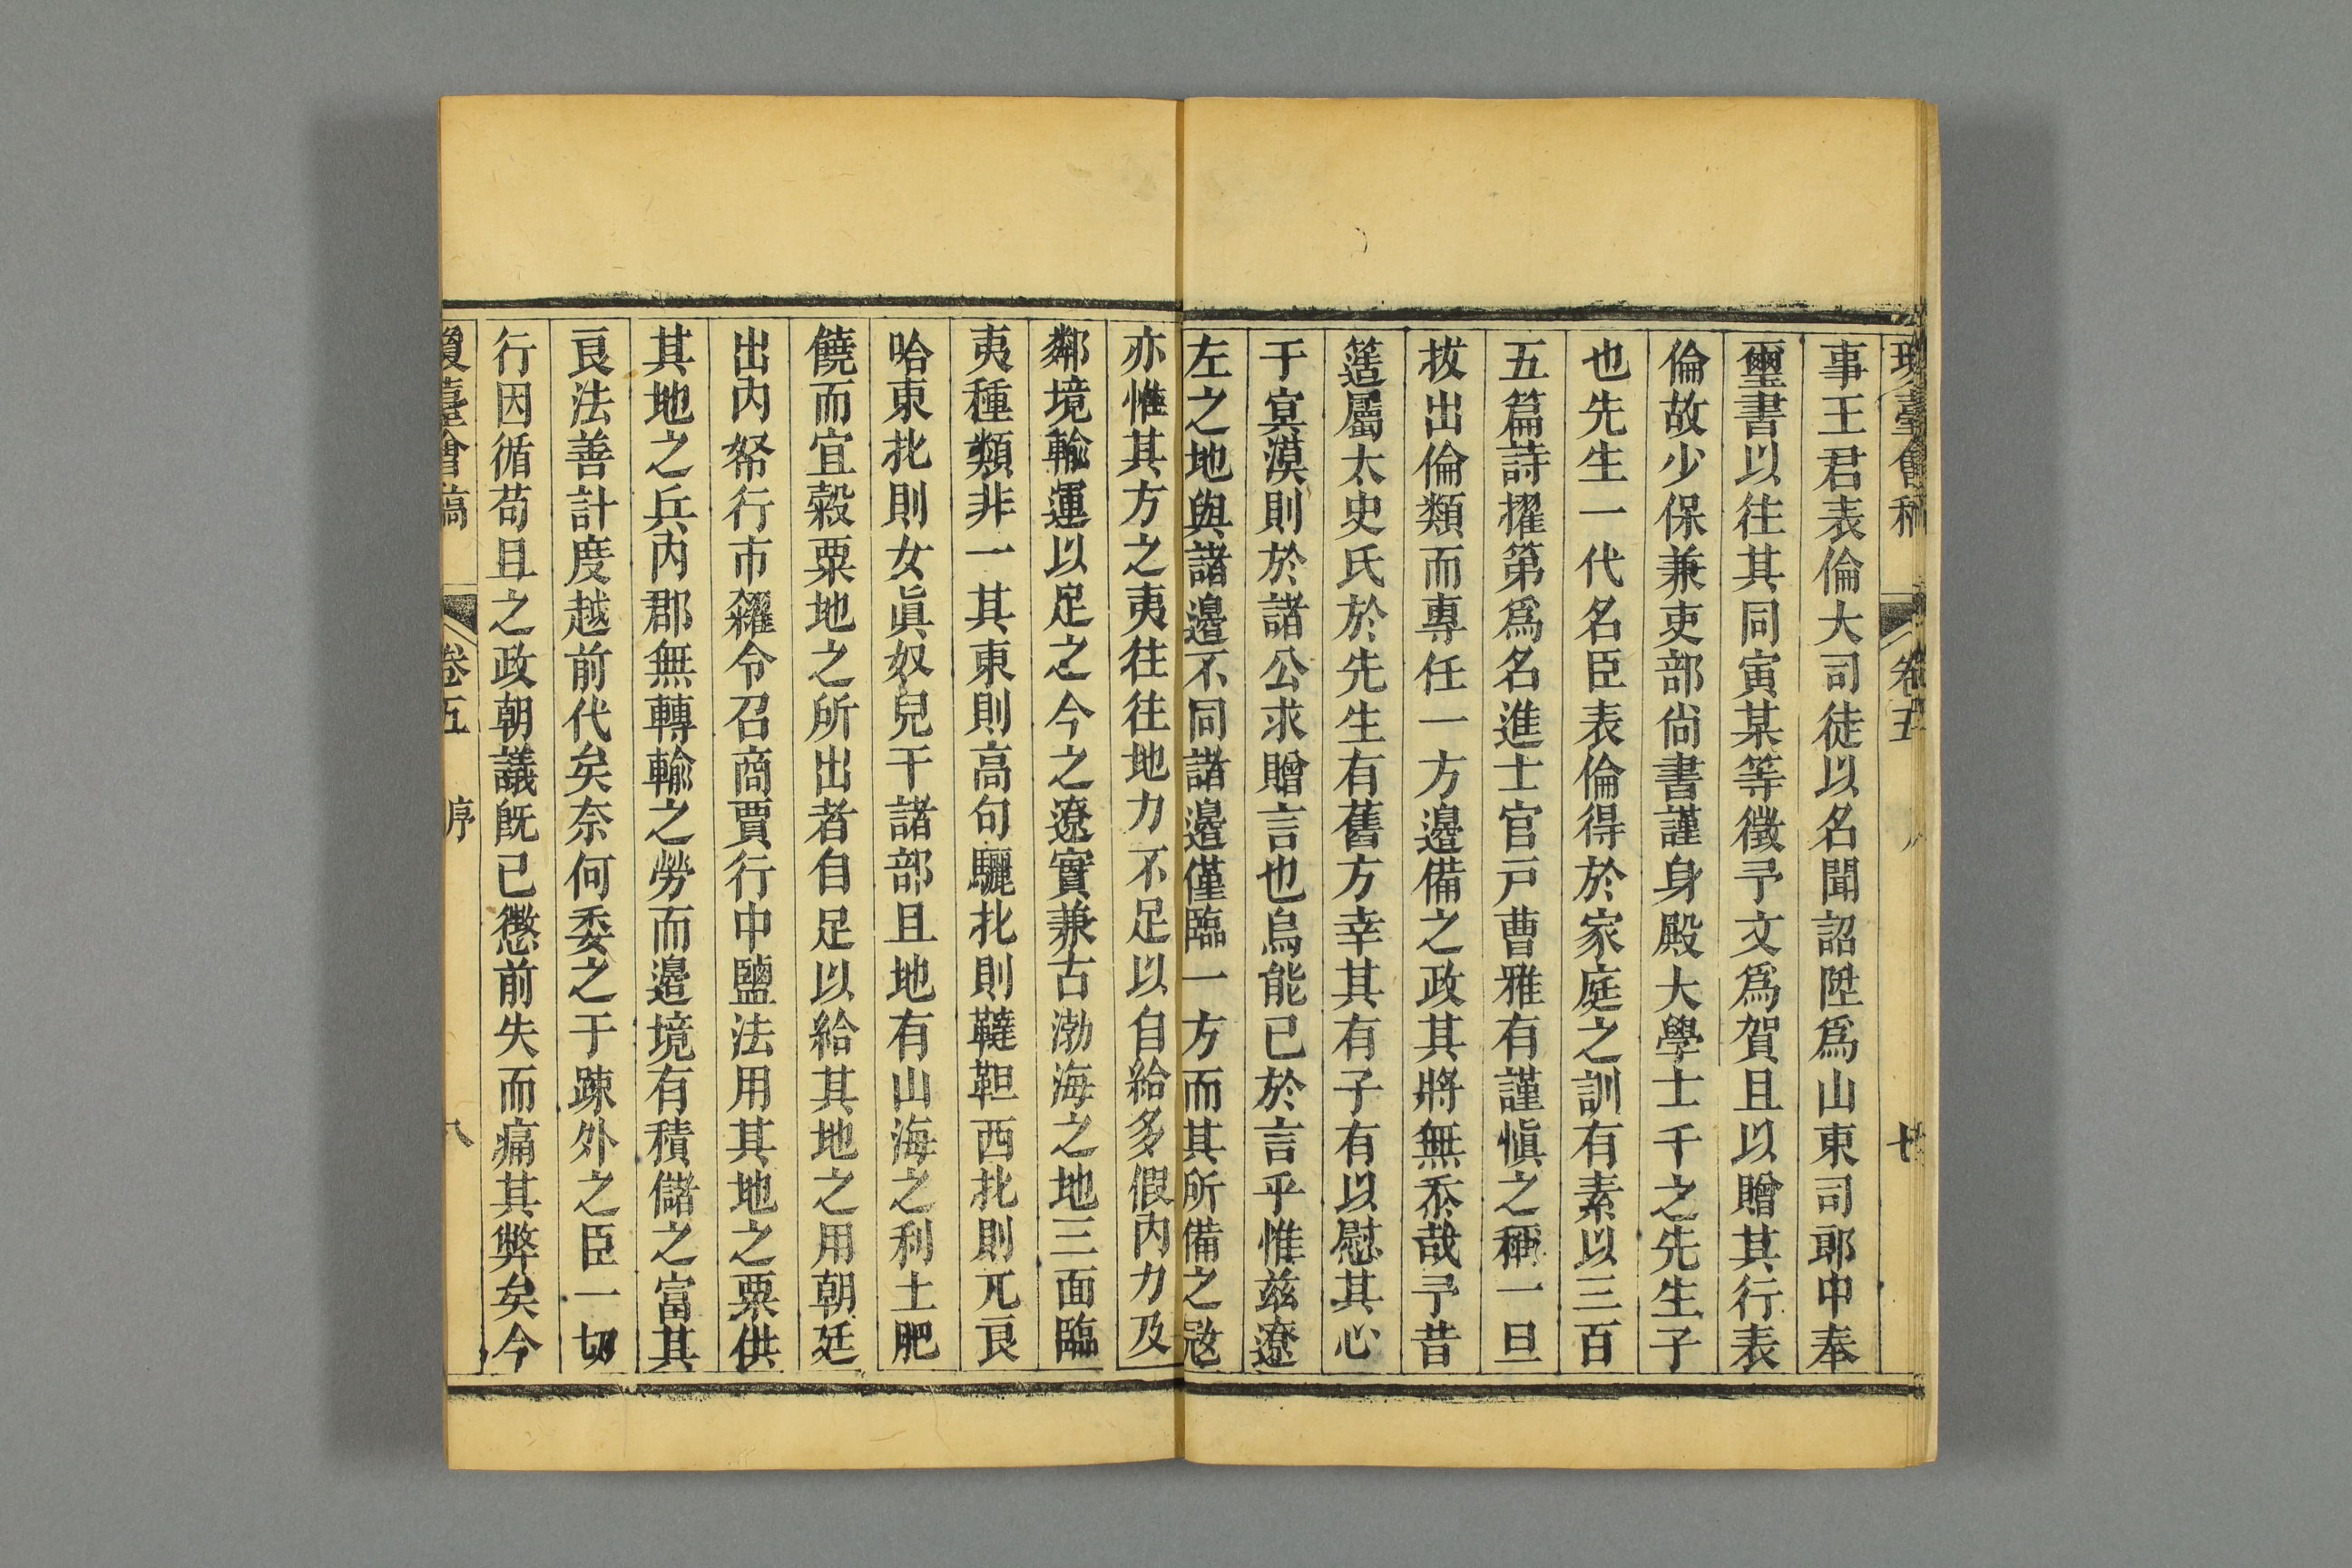 臺會稿 卷五
事王君表倫大司徒以名聞詔陞爲山東司郎中奉
璽書以往其同寅某等徵予文爲賀且以贈其行表
倫故少保兼吏部尚書謹身殿大學士千之先生子
也先生一代名臣表倫得於家庭之訓有素以三百
五篇詩擢第爲名進士官戸曹雅有謹愼之稱一旦
拔出倫類而專任一方邊備之政其將無忝哉予昔
筮屬太史氏於先生有舊方幸其有子有以慰其心
于㝠漠則於諸公求贈言也烏能已於言乎惟兹遼
左之地與諸邊不同諸邊僅臨一方而其所備之㓂
亦惟其方之夷往往地力不足以自給多假内力及
鄰境輸運以足之今之遼實兼古渤海之地三面臨
夷種類非一其東則高句驪北則韃靼西北則兀良
哈東北則女眞奴兒干諸部且地有山海之利土肥
饒而宜榖粟地之所出者自足以給其地之用朝廷
出内帑行市糴令召商賈行中鹽法用其地之粟供
其地之兵内郡無轉輸之勞而邊境有積儲之富其
良法善計度越前代矣奈何委之于踈外之臣一切
行因循苟且之政朝議旣已懲前失而痛其弊矣今
臺會稿 卷五 序 八